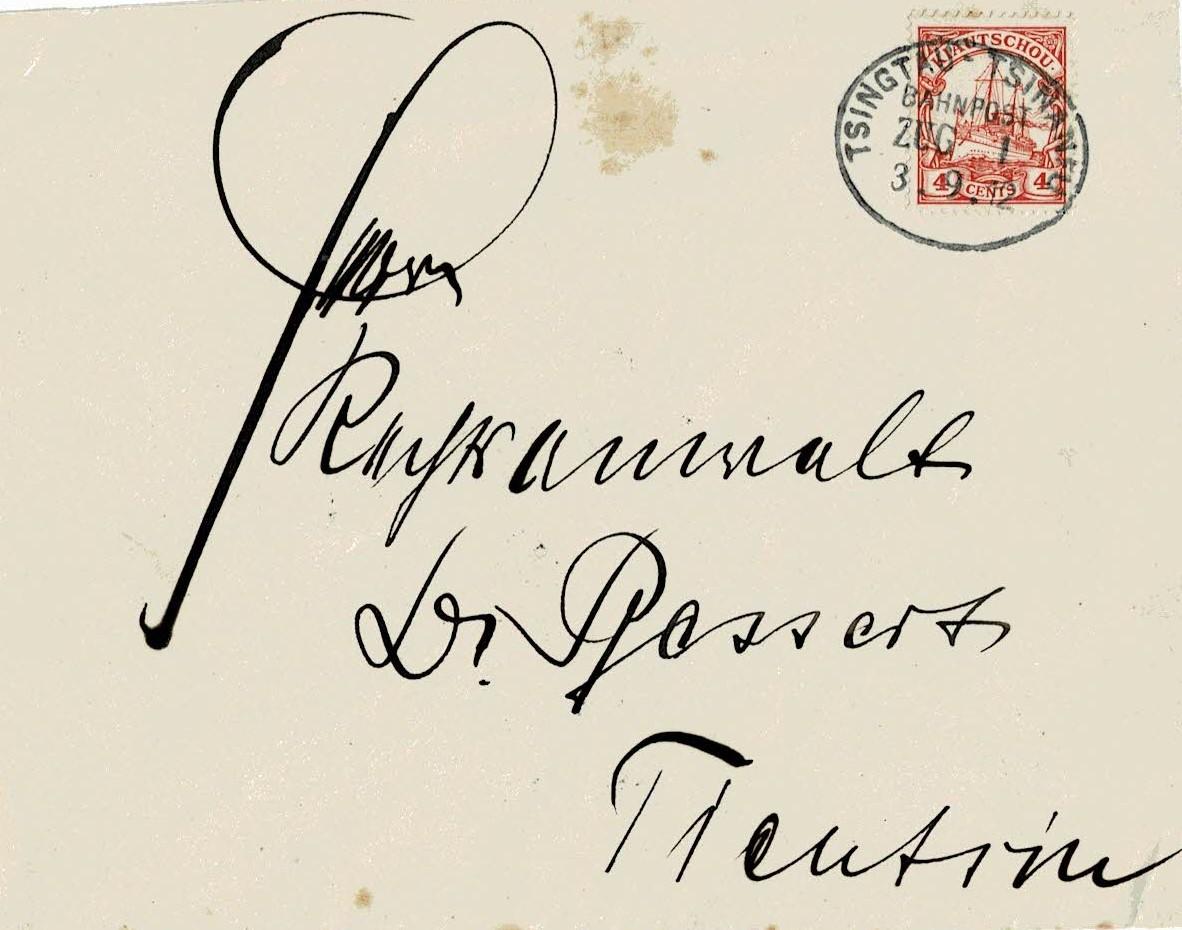 KIAUTSCHOU
TSINGTAU - TSINANFU
BAHNPOST
ZUG 1
3 9. 12
4 CENTS 4
Herrn
Rechtsanwalt
Dr.
Tientsin